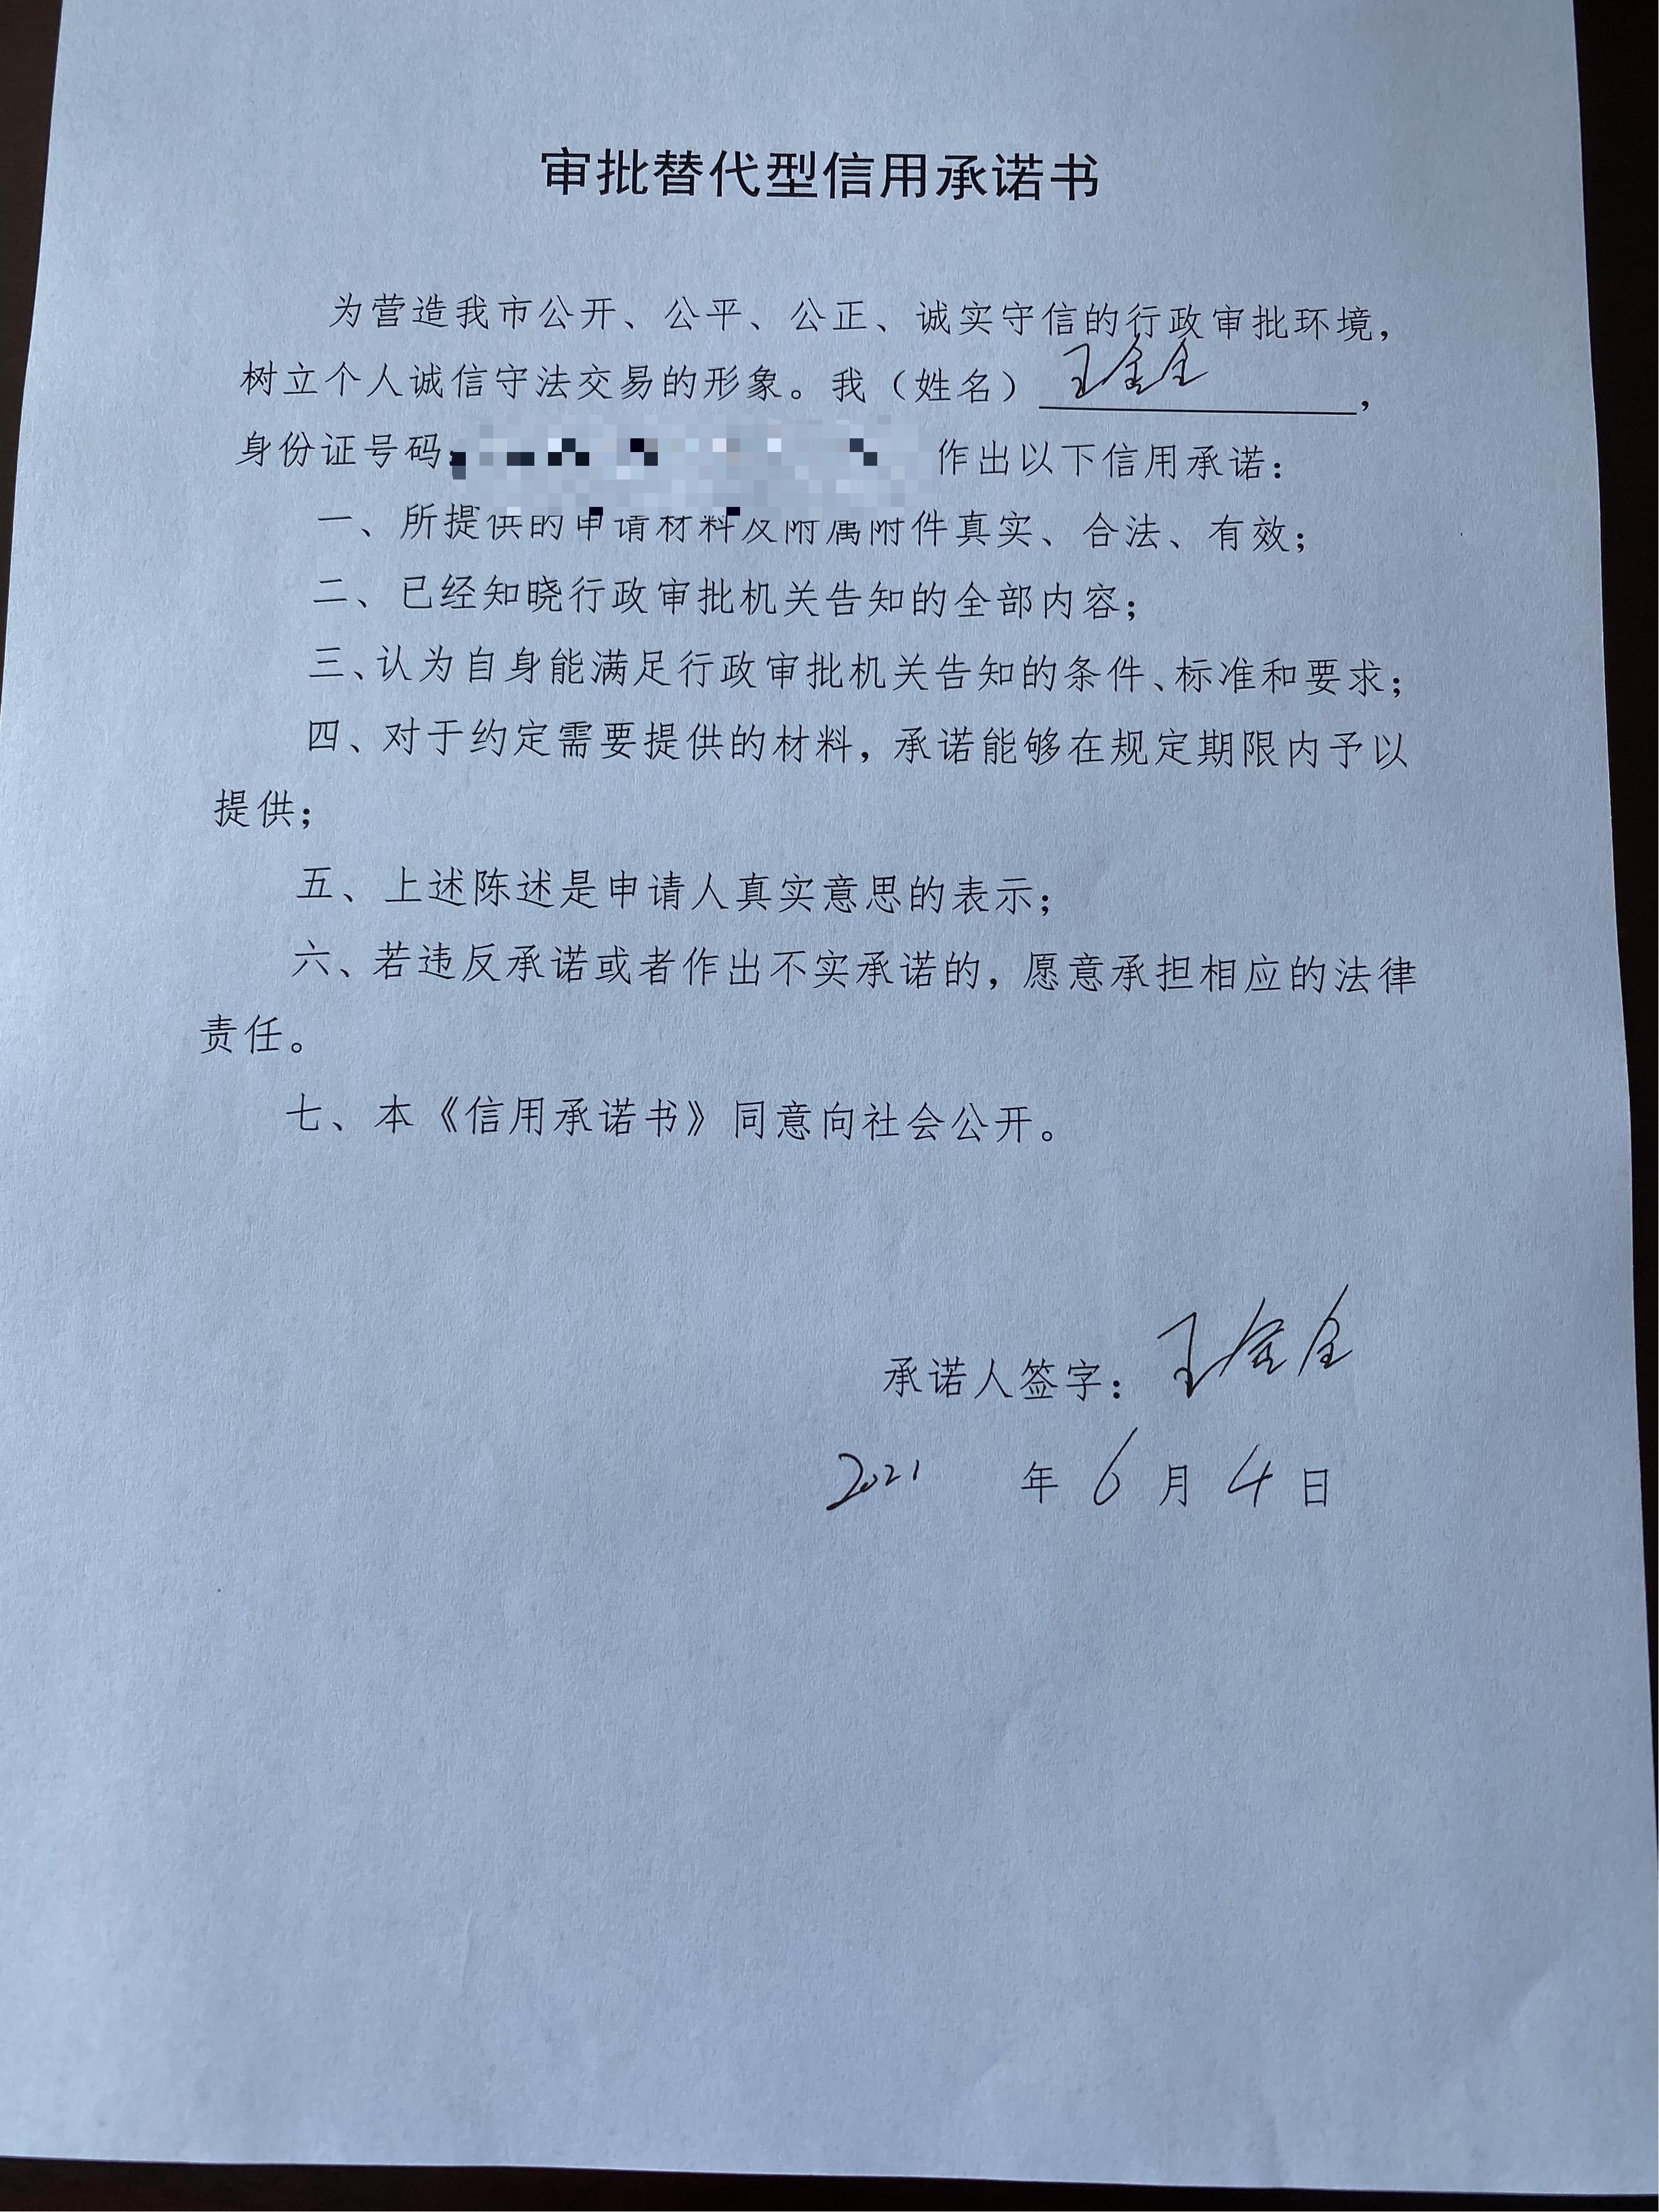 审批替代型信用承诺书
为营造我市公开、公平、公正、诚实守信的行政审批环境，
树立个人诚信守法交易的形象。我（姓名）王金全，
身份证号码：作出以下信用承诺：
一、所提供的申请材料及附属附件真实、合法、有效；
二、已经知晓行政审批机关告知的全部内容；
三、认为自身能满足行政审批机关告知的条件、标准和要求；
四、对于约定需要提供的材料，承诺能够在规定期限内予以
提供；
五、上述陈述是申请人真实意思的表示；
六、若违反承诺或者作出不实承诺的，愿意承担相应的法律
责任。
七、本《信用承诺书》同意向社会公开。
承诺人签字：王金全
2021 年 6 月 4 日